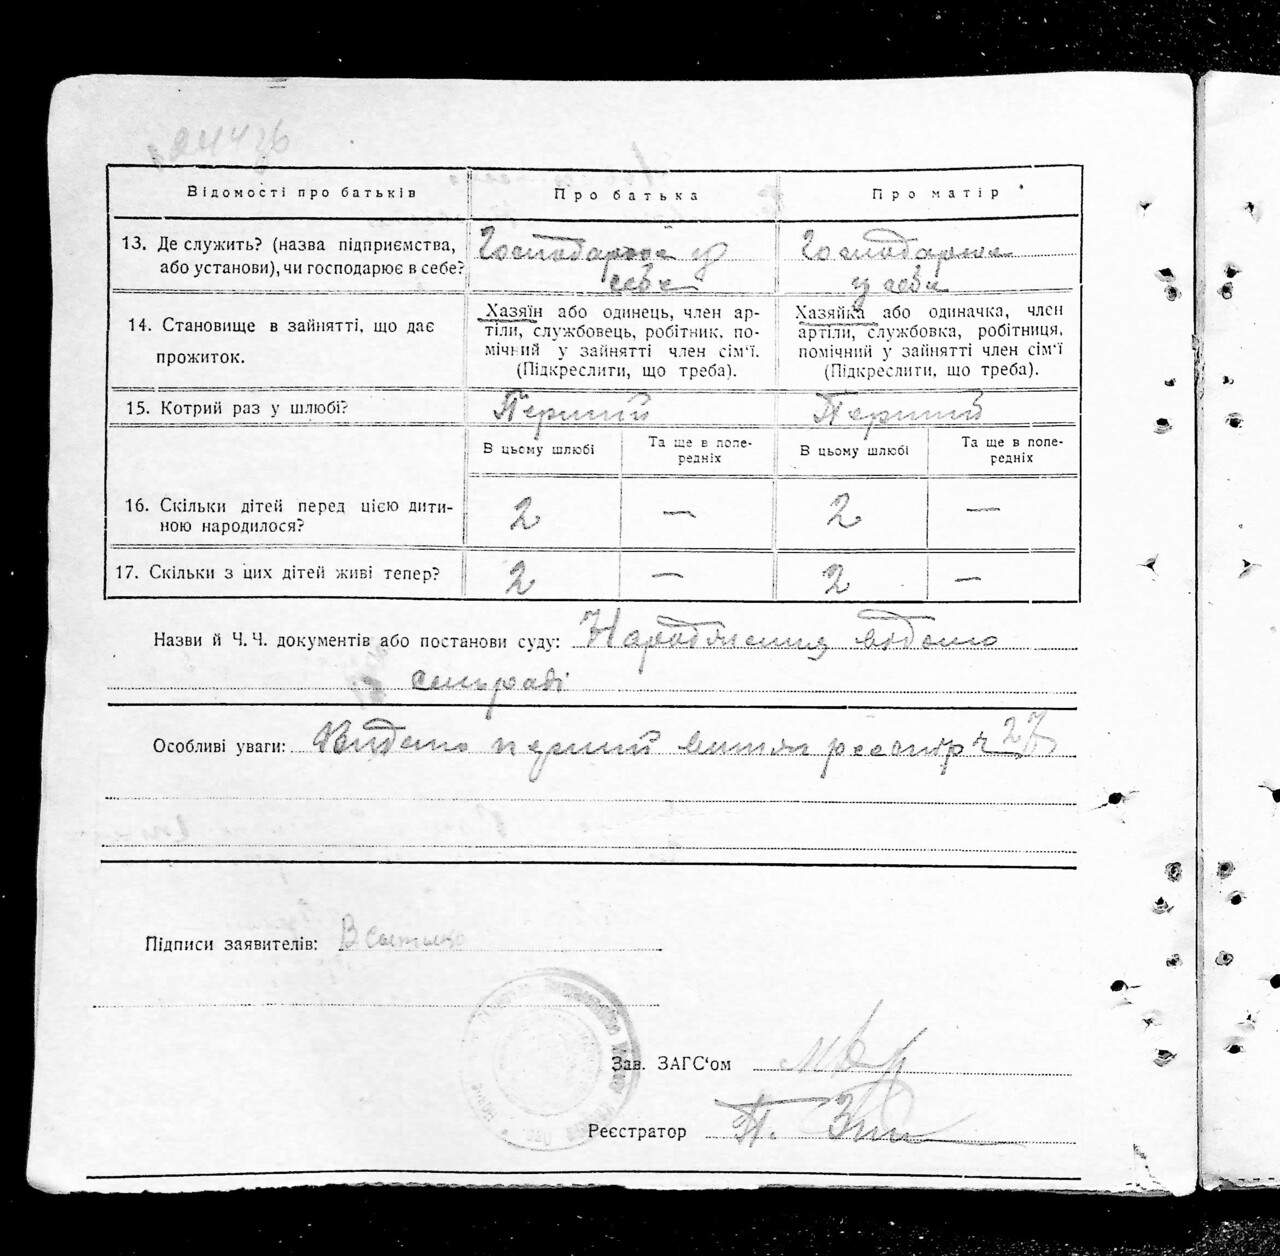 Відомості про батьків
Про батька
Про матір
13. Де служить? (назва підприємства,
або установи), чи господарює в себе?
Господарює у
себе
Господарює
у себе
14. Становище в зайнятті, що дає
прожиток.
Хазяїн або одинець, член ар-
тіли, службовець, робітник, по-
мічний у зайнятті член сім'ї.
(Підкреслити, що треба).
Хазяйка або одиначка, член
артіли, службовка, робітниця,
помічний у зайнятті член сім'ї
(Підкреслити, що треба).
15. Котрий раз у шлюбі?
Перший
Перший
В цьому шлюбі
Та ще в попе-
редніх
В цьому шлюбі
Та ще в попе-
редніх
16. Скільки дітей перед цією дити-
ною народилося?
2
—
2
—
17. Скільки з цих дітей живі тепер?
2
—
2
—
Назви й Ч. Ч. документів або постанови суду: Народження відомо
сельраді
Особливі уваги: Видано перший витяг реєстр ч 27
Підписи заявителів:
Зав. ЗАГС'ом
Реєстратор П.